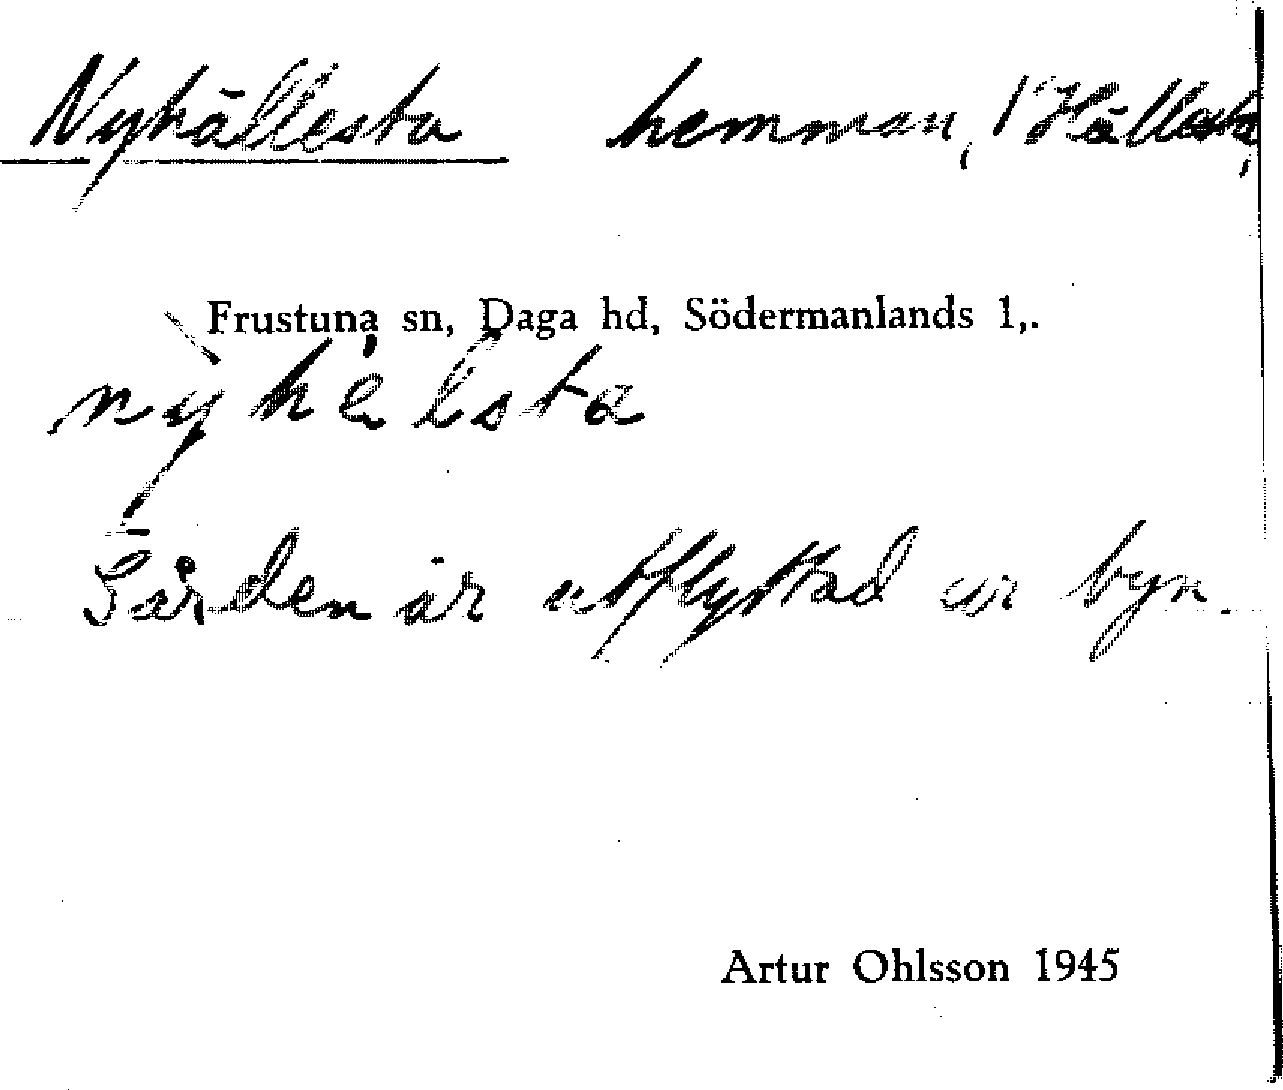 Nyhällesta hemman, 1 Hällesta,
Frustuna sn, Daga hd, Södermanlands l,.
nỳhélsta
Gården är utflyttad ur byn.
Artur Ohlsson 1945